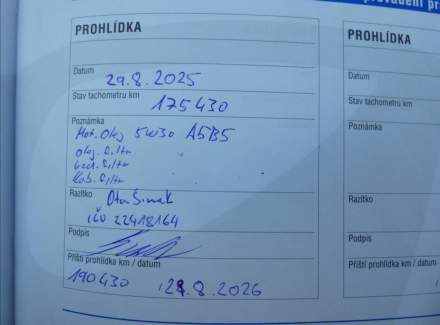 PROHLÍDKA
Datum
29.8.2025
Stav tachometru km
175430
Poznámka
Mot. Olej 5W30 A5B5
olej. filtr
vzd. filtr
Kab. filtr
Razítko
Ota Šimak
IČO 22418164
Podpis
Příští prohlídka km / datum
190430 / 29.8.2026
PROHLÍDKA
Datum
Stav tachometru km
Poznámka
Razítko
Podpis
Příští prohlídka km / datum